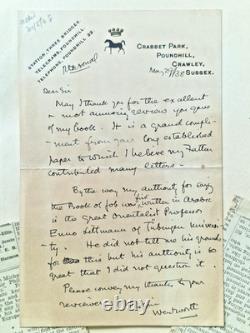 STATION, THREE BRIDGES.
TELEGRAMS, POUNDHILL.
TELEPHONE, POUNDHILL 22
Personal
CRABBET PARK,
POUNDHILL,
CRAWLEY,
SUSSEX.
Dear Sir
May I thank you for the excellent
& most amusing review you gave
of my book. It is a grand compli-
ment from your long established
paper to which I believe my Father
contributed many letters -
By the way my authority for saying
the Book of Job was first written in Arabic
is the great Orientalist Professor
Enno Littmann of Tubingen Univer-
ty. He did not tell me his grounds
for this but his authority is so
great that I did not question it.
Please convey my thanks to your
reviewer
Wentworth